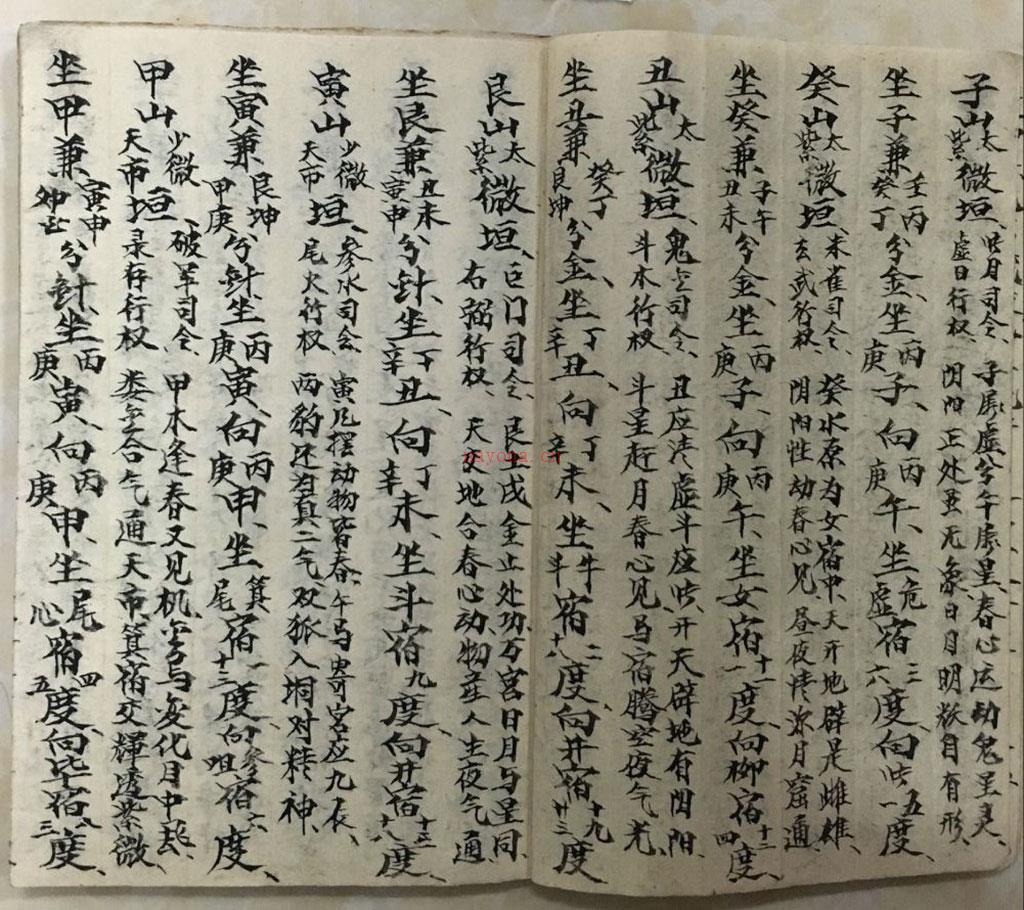 子山太紫微垣、
毕月司令、子属虚兮午属星、春心运动鬼星灵、
虚日行权、阴阳正处虽无象、日月明然自有形、
坐子兼壬丙癸丁分金、坐丙庚子、向丙庚午、坐危虚宿三六度、向毕五一度、
癸山太紫微垣、
朱雀司令、癸水原为女宿中、天开地辟是雌雄、
玄武行权、阴阳性动春心见、昼夜情浓月窟通、
坐癸兼子午丑未分金、坐丙庚子、向丙庚午、坐女宿十一一度、向柳宿十三四度、
丑山太紫微垣、
鬼金司令、丑应津虚斗应毕、开天辟地有阴阳、
斗木行权、斗星赶月春心见、马宿腾空夜气光、
坐丑兼癸丁艮坤分金、坐丁辛丑、向丁辛未、坐牛斗宿二十八度、向井宿十九廿三度、
艮山太紫微垣、
巨门司令、艮土戊金止处功、万宫日月与星同、
右弼行权、天文地合春心动、物产人生夜气通
坐艮兼丑未寅申分针、坐丁辛丑、向丁辛未、坐斗宿九度、向井宿十三十八度、
寅山少微天市垣、
参水司令、寅凡摆动物皆春、午马寄宫应九辰、
尾火行权、两豹还为真二气、双狐入洞对精神、
坐寅兼艮坤甲庚分针、坐丙庚寅、向丙庚申、坐箕尾宿一十三度、向参咀宿六度、
甲山少微天市垣、
破军司令、甲木逢春又见机、金马变化月中
录存行权、娄金合气通天市、箕宿交辉透紫微
坐甲兼寅申卯酉分针、坐丙庚寅、向丙庚申、坐尾心宿四五度、向毕宿八三度、